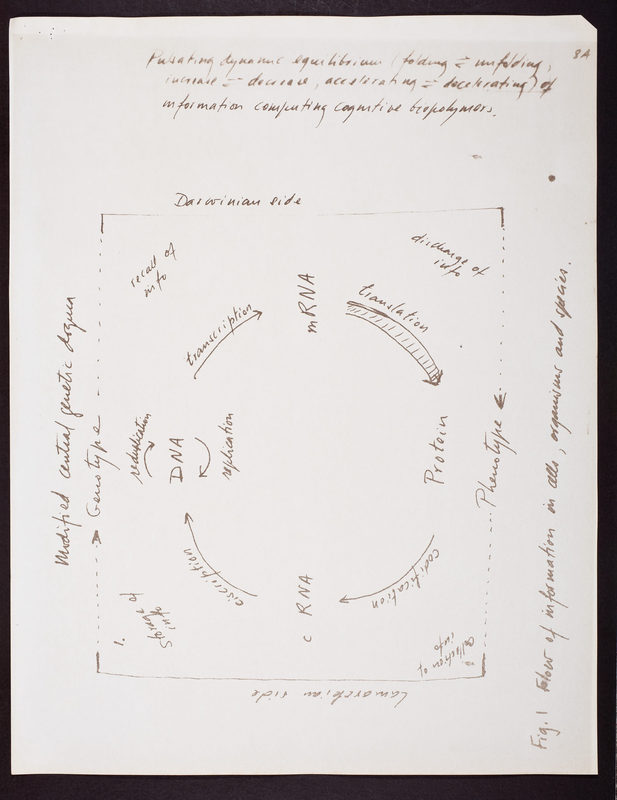 8A
Pulsating dynamic equilibrium (folding ⇌ unfolding,
increase ⇌ decrease, accelerating ⇌ decelerating) of
information computing cognitive biopolymers.
Darwinian side
recall of
info
discharge of
info
mRNA
transcription
translation
Modified central genetic dogma
Genotype
reduplication
DNA
replication
Protein
Phenotype
ciscription
c RNA
codification
1.
Storage of
info
collection of
info
Lamarckian side
Fig. 1 Flow of information in cells, organisms and species.